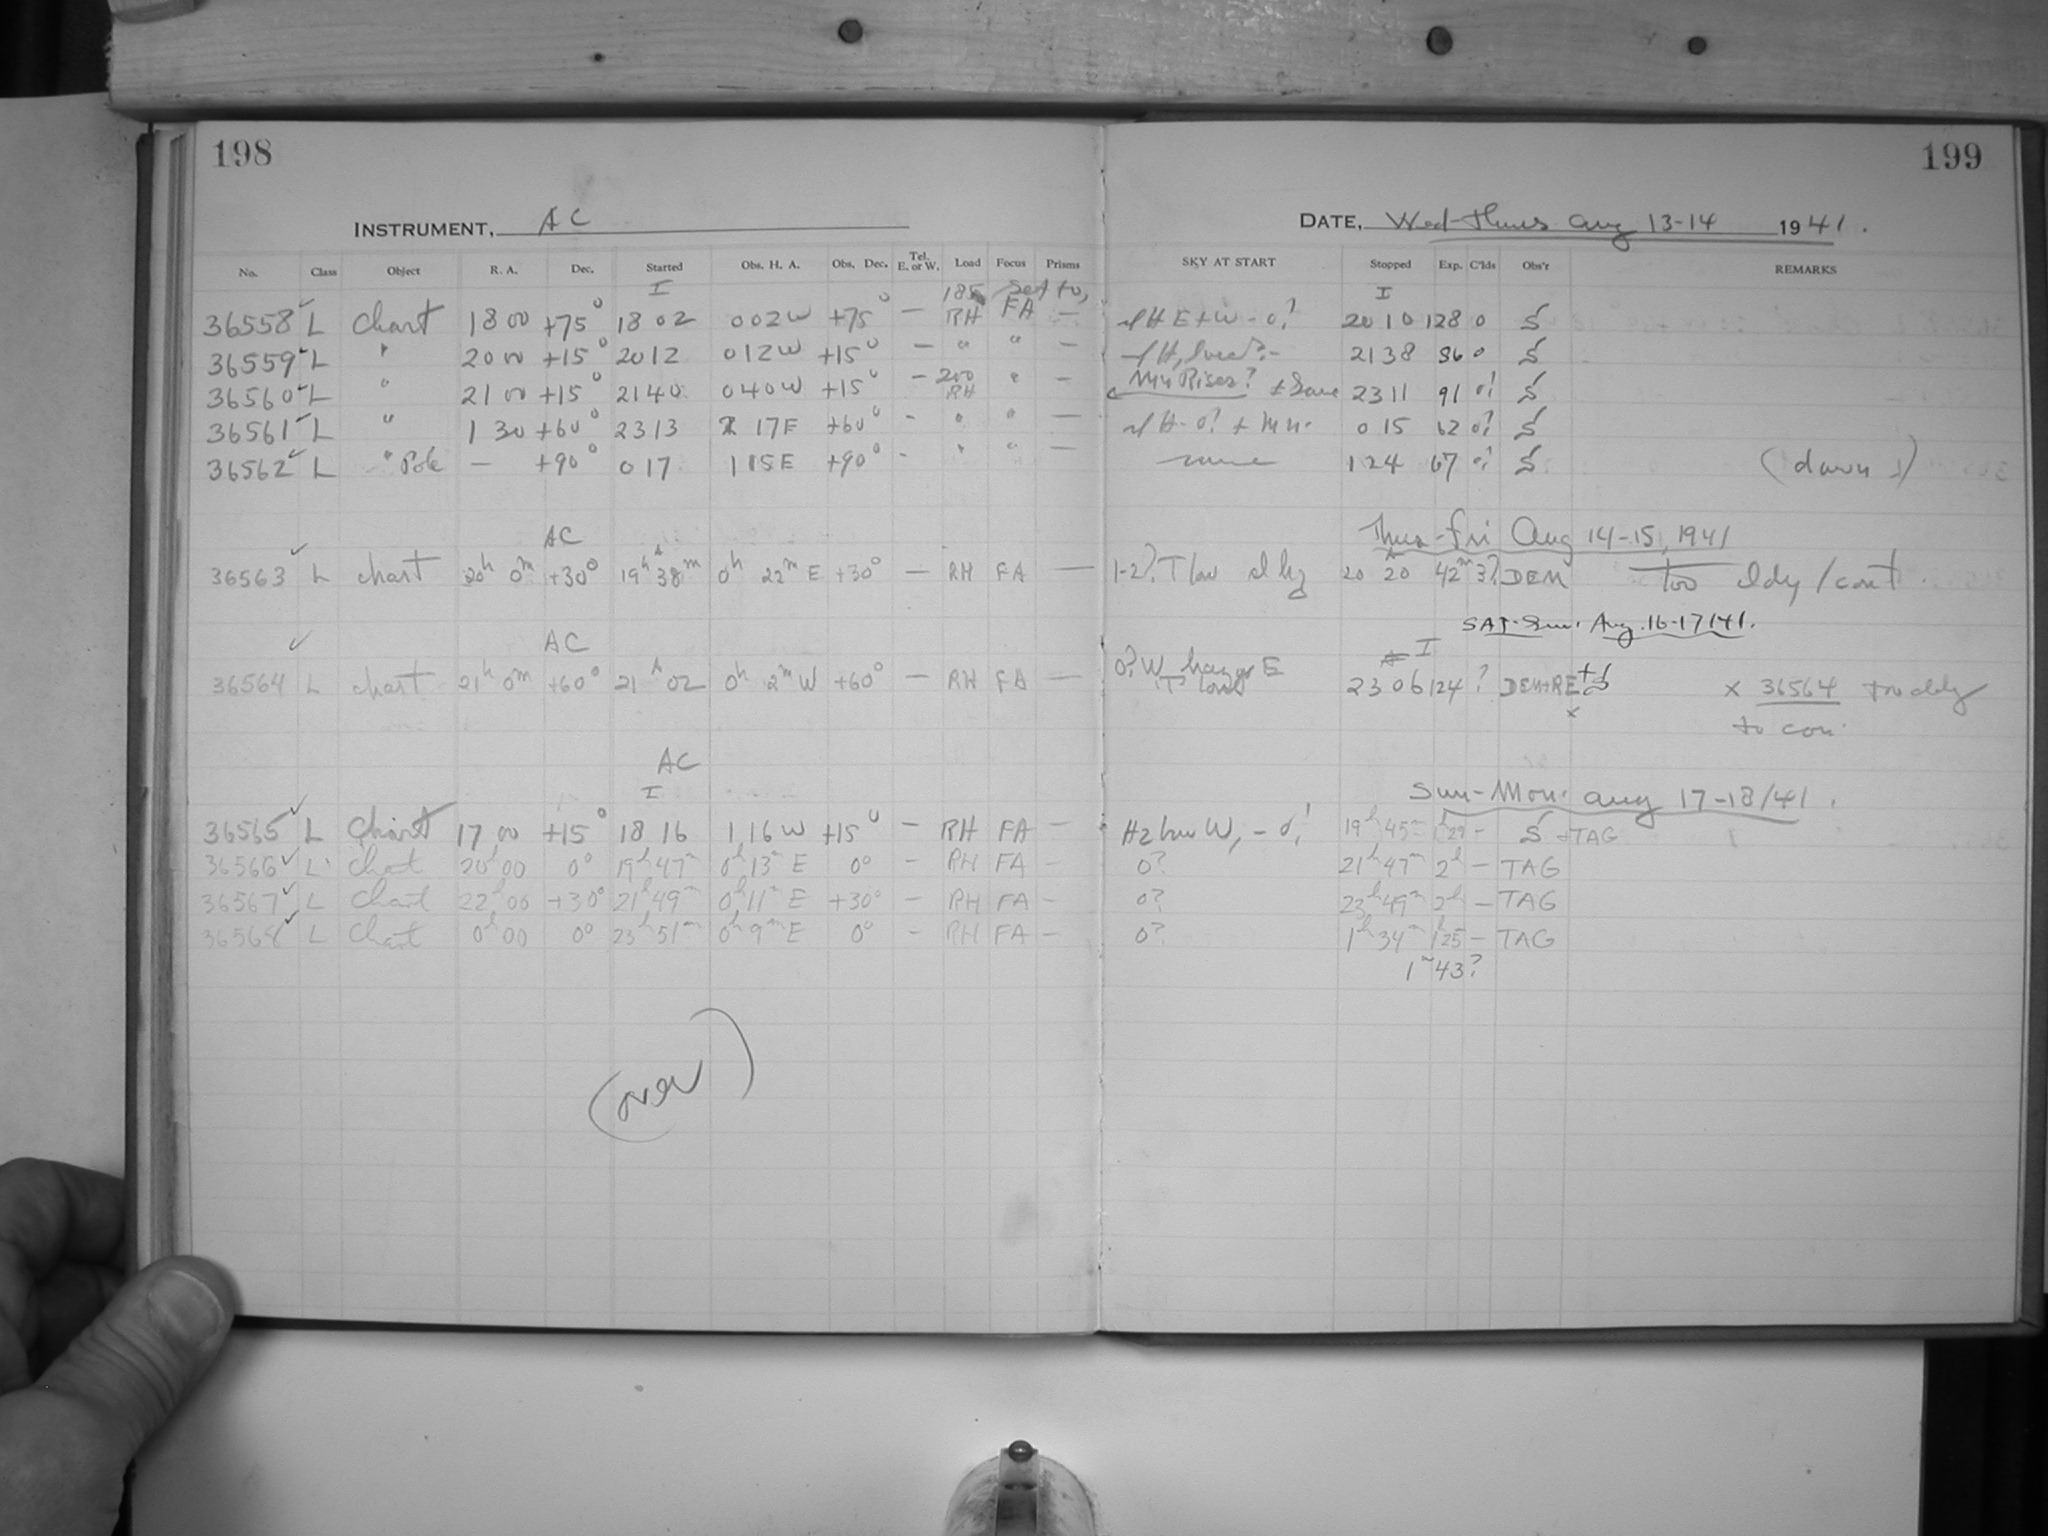 198
199
INSTRUMENT, AC
DATE, Wed-Thurs Aug 13-14 1941.
No. Class Object R. A. Dec. Started Obs. H. A. Obs. Dec. Tel. E. or W. Load Focus Prisms SKY AT START Stopped Exp. C'lds Obs'r REMARKS
I 185 Set to, I
36558 ✓ L Chart 18 00 +75° 18 02 0 02 W +75° — RH FA — H E + W - 0? 20 10 128 0 S
36559 ✓ L " 20 00 +15° 20 12 0 12 W +15° — " " — 21 38 86 0 S
36560 ✓ L " 21 00 +15° 21 40 0 40 W +15° — 200 RH " — Mn Rises? + Same 23 11 91 0? S
36561 ✓ L " 1 30 +60° 23 13 2 17 E +60° - " " — H - 0? + Mn. 0 15 62 0? S
36562 ✓ L " Pole — +90° 0 17 1 15 E +90° - " " — same 1 24 67 0? S (dawn)
AC Thurs-Fri Aug 14-15, 1941
36563 ✓ L chart 20h 0m +30° 19h 38m 0h 22m E +30° — RH FA — 1-2? T low 20 20 42m 3? DEM too cldy / cont.
SAT-Sun. Aug. 16-17/41.
AC I
36564 ✓ L chart 21h 0m +60° 21 02 0h 2m W +60° — RH FA — 0? W haze E T low 23 06 124 ? DEM+RE+S x x 36564 too cldy
to con.
AC
I Sun-Mon. Aug 17-18/41.
36565 ✓ L Chart 17 00 +15° 18 16 1 16 W +15° — RH FA — Hz low W, - 0? 19h 45m 1h29 — S + TAG
36566 ✓ L Chart 20h 00 0° 19h 47m 0h 13m E 0° — RH FA — 0? 21h 47m 2h — TAG
36567 ✓ L Chart 22h 00 +30° 21h 49m 0h 11m E +30° — RH FA — 0? 23h 49m 2h — TAG
36568 ✓ L Chart 0h 00 0° 23h 51m 0h 9m E 0° — RH FA — 0? 1h 34m 1h25 — TAG
1m 43?
(over)